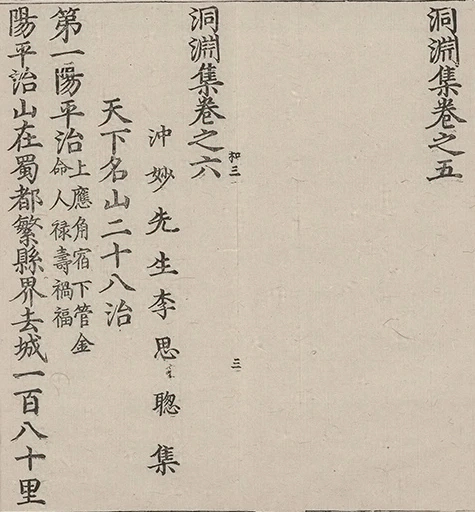 洞淵集卷之五
洞淵集卷之六
和三
三
沖妙先生李思聰集
天下名山二十八治
第一陽平治
上應角宿下管金
命人禄壽禍福
陽平治山在蜀都繁縣界去城一百八十里